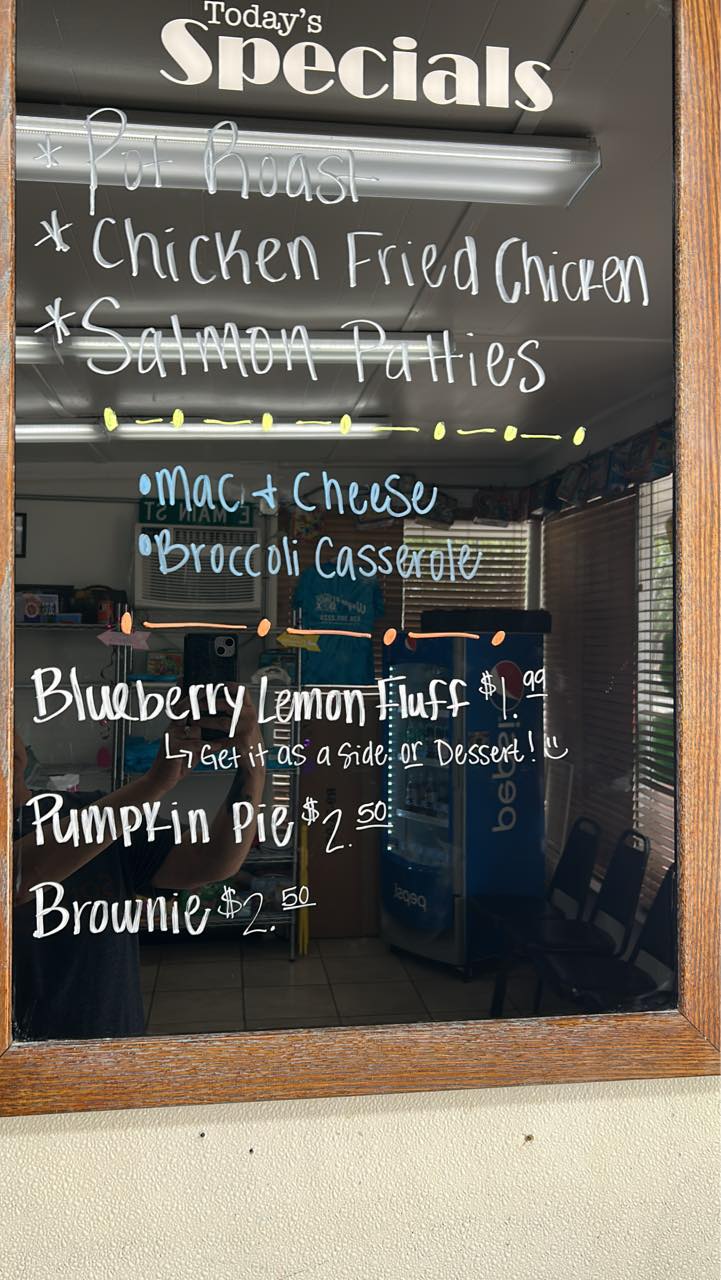 Today's
Specials
* Pot Roast
* Chicken Fried Chicken
* Salmon Patties
•Mac + Cheese
E MAIN ST
•Broccoli Casserole
Blueberry Lemon Fluff $1.99
↳ Get it as a side or Dessert! :)
pepsi
Pumpkin Pie $2.50
Brownie $2.50
pepsi